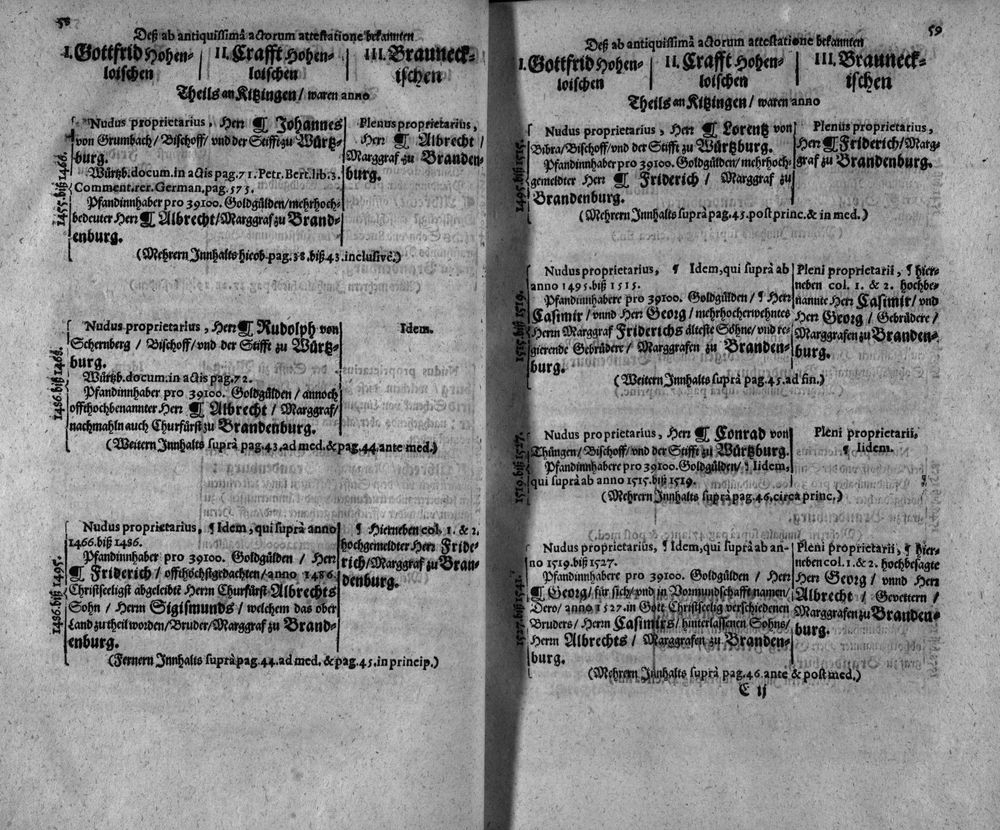 58
Deß ab antiquissimâ actorum attestatione bekannten
I. Gottfrid Hohen- II. Crafft Hohen- III. Brauneck-
loischen loischen ischen
Theils an Kitzingen/ waren anno
1455. biß 1466.
Nudus proprietarius, Herr ¶ Johannes
von Grumbach/ Bischoff/ vnd der Stifft zu Würtz-
burg.
Würtzb. docum. in actis pag. 71. Petr. Bert. lib. 3.
Comment. rer. German. pag. 575.
Pfandinnhaber pro 39100. Goldgülden/ mehrhoch-
bedeuter Herr ¶ Albrecht/ Marggraf zu Brand-
enburg.
Plenus proprietarius,
Herr ¶ Albrecht/
Marggraf zu Branden-
burg.
(Mehrern Innhalts hieob. pag. 38. biß 43. inclusivè.)
Nudus proprietarius, Herr ¶ Rudolph von
Schernberg/ Bischoff/ vnd der Stifft zu Würtz-
burg.
Würtzb. docum. in actis pag. 72.
Pfandinnhaber pro 39100. Goldgülden/ annoch
offthochbenannter Herr ¶ Albrecht/ Marggraf/
nachmahln auch Churfürst zu Brandenburg.
Idem.
(Weitern Innhalts suprà pag. 43. ad med. & pag. 44. ante med.)
1486. biß 1495.
Nudus proprietarius, ¶ Idem, qui suprà anno
1466. biß 1486.
Pfandinnhaber pro 39100. Goldgülden/ Herr
¶ Friderich/ offthöchstgedachten/ anno 1486.
Christseeligst abgeleibte Herrn Churfürst Albrechts
Sohn/ Herrn Sigismunds/ welchem das ober
Land zu theil worden/ Bruder/ Marggraf zu Brand-
enburg.
¶ Hierneben col. 1. & 2.
hochgemeldter Herr Fride-
rich/ Marggraf zu Bran-
denburg.
(Fernern Innhalts suprà pag. 44. ad med. & pag. 45. in princip.)
59
Deß ab antiquissimâ actorum attestatione bekannten
I. Gottfrid Hohen- II. Crafft Hohen- III. Brauneck-
loischen loischen ischen
Theils an Kitzingen/ waren anno
1495. biß 1515.
Nudus proprietarius, Herr ¶ Lorentz von
Bibra/ Bischoff/ vnd der Stifft zu Würtzburg.
Pfandinnhaber pro 39100. Goldgülden/ mehrhoch-
gemeldter Herr ¶ Friderich/ Marggraf zu
Brandenburg.
Plenus proprietarius,
Herr ¶ Friderich/ Marg-
graf zu Brandenburg.
(Mehrern Innhalts suprà pag. 45. post princ. & in med.)
1515. biß 1519.
Nudus proprietarius, ¶ Idem, qui suprà ab
anno 1495. biß 1515.
Pfandinnhabere pro 39100. Goldgülden/ ¶ Herr
Casimir/ vnnd Herr Georg/ mehrhocherwehntes
Herrn Marggraf Friderichs älteste Söhne/ vnd re-
gierende Gebrüdere/ Marggrafen zu Branden-
burg.
Pleni proprietarii, ¶ hier-
neben col. 1. & 2. hochbe-
nannte Herr Casimir/ vnd
Herr Georg/ Gebrüdere/
Marggrafen zu Branden-
burg.
(Weitern Innhalts suprà pag. 45. ad fin.)
1519. biß 1527.
Nudus proprietarius, Herr ¶ Conrad von
Thüngen/ Bischoff/ vnd der Stifft zu Würtzburg.
Pfandinnhabere pro 39100. Goldgülden/ ¶ Iidem,
qui suprà ab anno 1515. biß 1519.
Pleni proprietarii,
¶ Iidem.
(Mehrern Innhalts suprà pag. 46. circa princ.)
1527. biß 1541.
Nudus proprietarius, ¶ Idem, qui suprà ab an-
no 1519. biß 1527.
Pfandinnhabere pro 39100. Goldgülden/ Herr
¶ Georg/ für sich/ vnd in Vormundschafft namen/
Dero/ anno 1527. in Gott Christseelig verschiedenen
Bruders/ Herrn Casimirs/ hinterlassenen Sohns/
Herrn Albrechts/ Marggrafen zu Branden-
burg.
Pleni proprietarii, ¶ hier-
neben col. 1. & 2. hochbesagte
Herr Georg/ vnnd Herr
Albrecht/ Gevettern/
Marggrafen zu Branden-
burg.
(Mehrern Innhalts suprà pag. 46. ante & post med.)
E ij